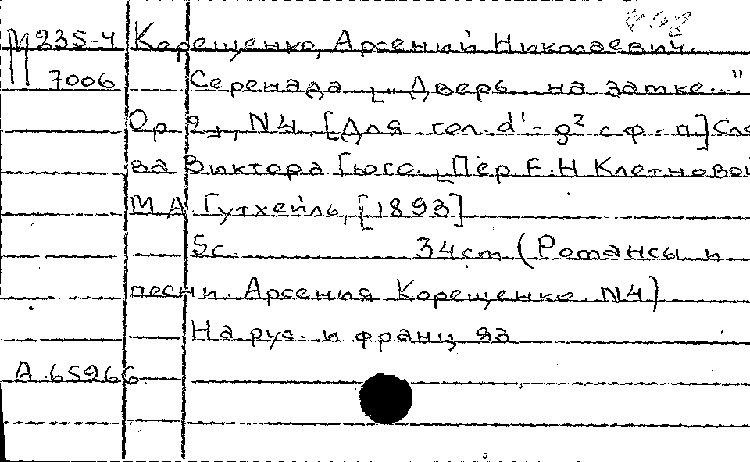 М 235-4 Корещенко, Арсений Николаевич.
7006 Серенада „Дверь на замке."
Op 2, N4. [Для гол. d¹- g² с ф-п.] Сло
ва Виктора Гюго. Пер Е.Н Клетновой
М А. Гутхейль, [1893]
5с. 34cm (Романсы и
песни Арсения Корещенко. N4)
На рус. и франц яз
А.65966